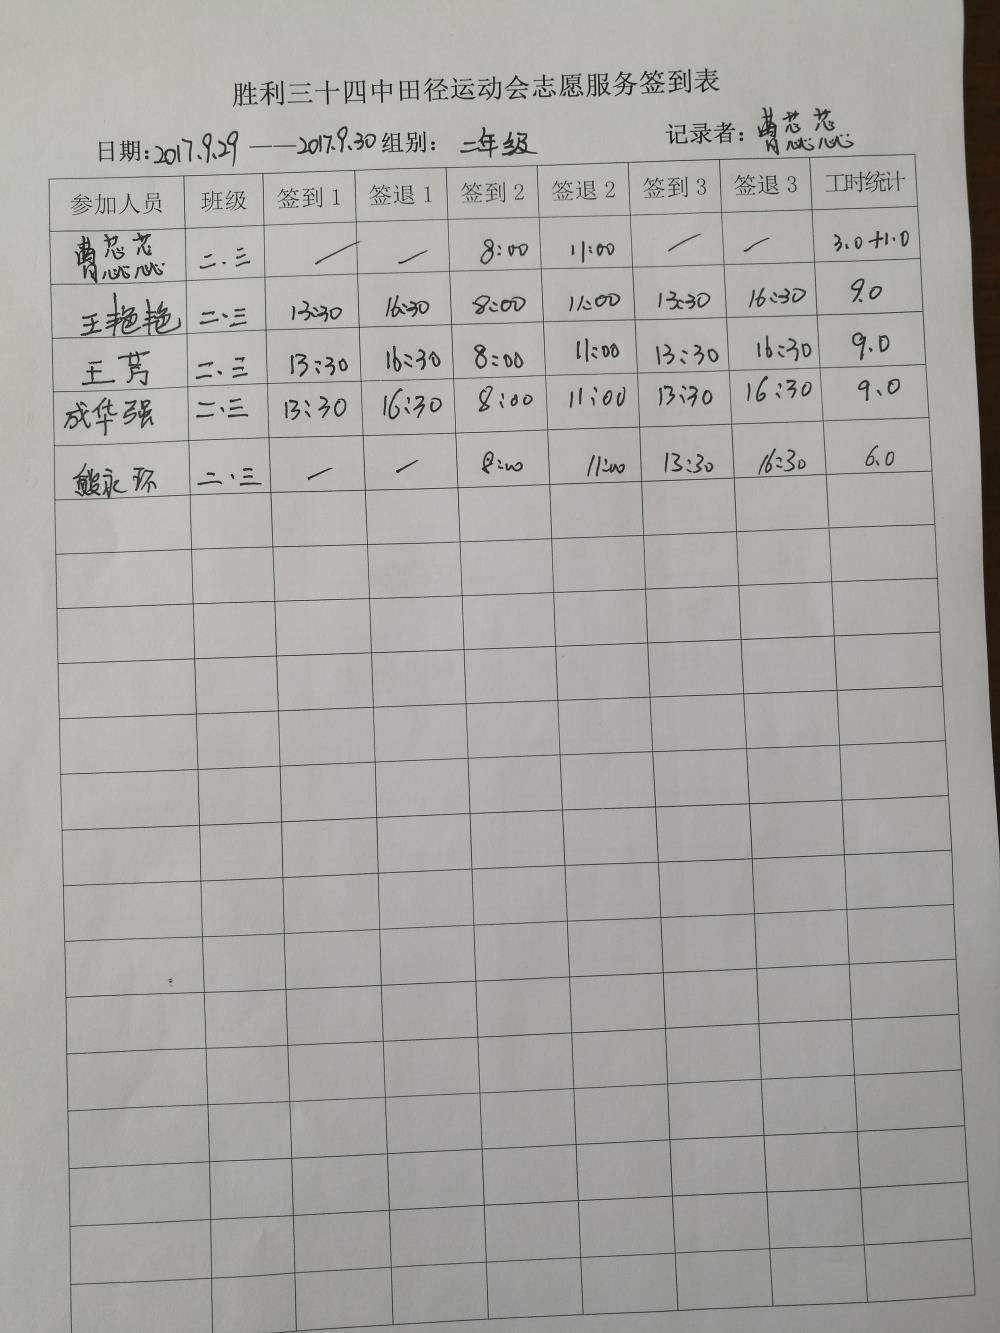 胜利三十四中田径运动会志愿服务签到表
日期:2017.9.29——2017.9.30 组别: 二年级 记录者: 曹芯芯
参加人员 班级 签到1 签退1 签到2 签退2 签到3 签退3 工时统计
曹 二.三 / — 8:00 11:00 — — 3.0+1.0
王艳艳 二.三 13:30 16:30 8:00 11:00 13:30 16:30 9.0
王芳 二.三 13:30 16:30 8:00 11:00 13:30 16:30 9.0
成华强 二.三 13:30 16:30 8:00 11:00 13:30 16:30 9.0
永环 二.三 — — 8:00 11:00 13:30 16:30 6.0